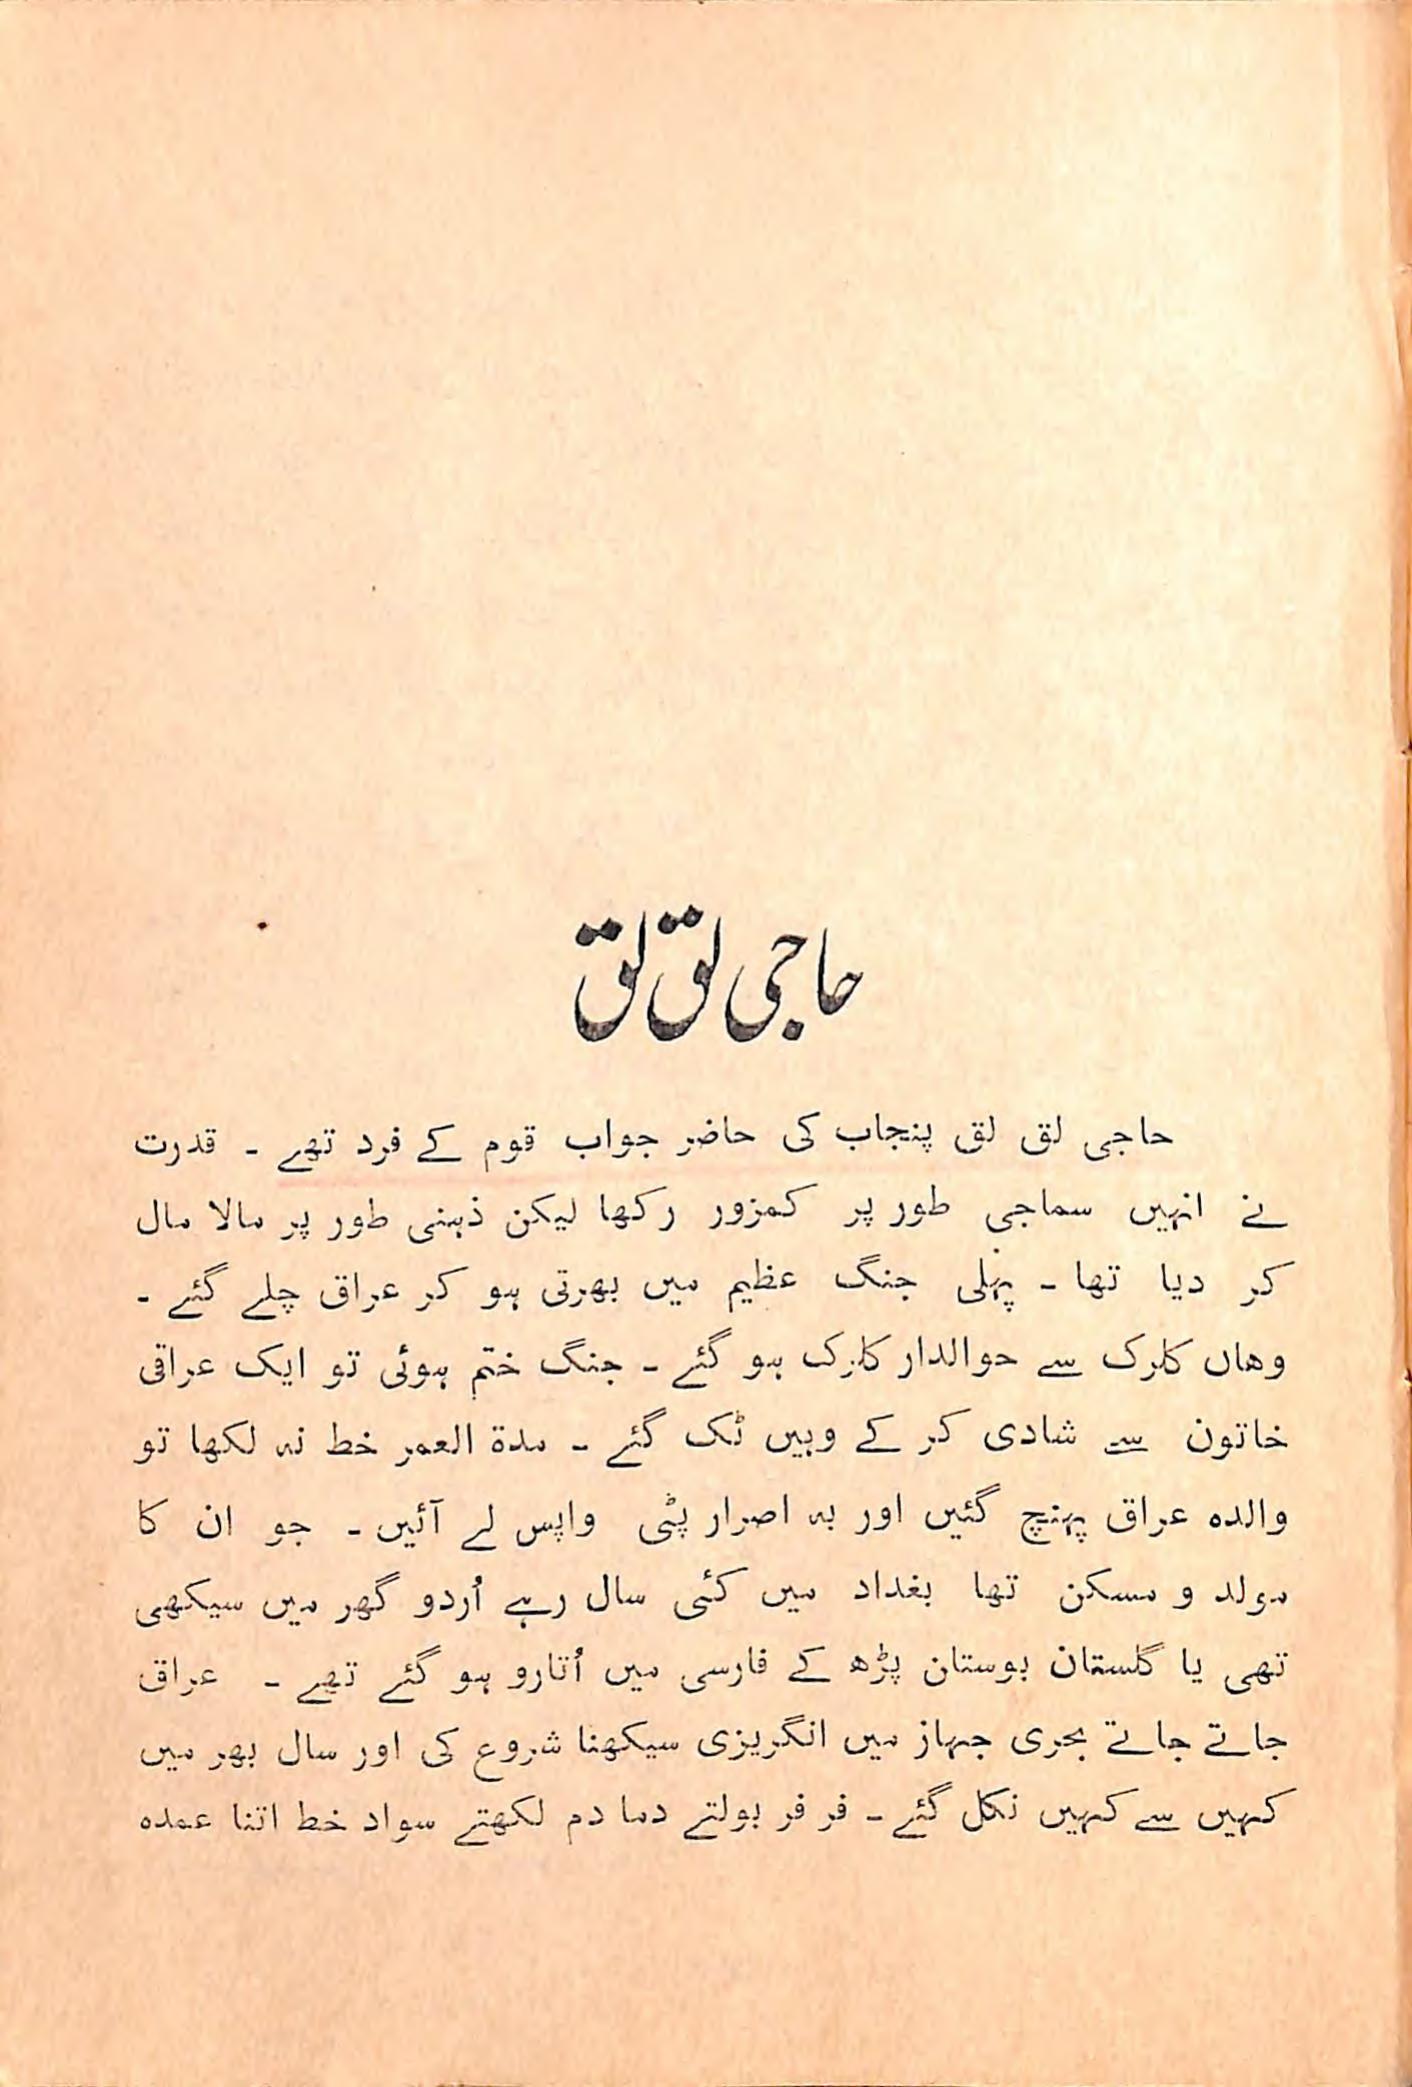 حاجی لق لق
حاجی لق لق پنجاب کی حاضر جواب قوم کے فرد تھے ۔ قدرت
نے انہیں سماجی طور پر کمزور رکھا لیکن ذہنی طور پر مالا مال
کر دیا تھا ۔ پہلی جنگ عظیم میں بھرتی ہو کر عراق چلے گئے ۔
وھاں کلرک سے حوالدار کلرک ہو گئے ۔ جنگ ختم ہوئی تو ایک عراقی
خاتون سے شادی کر کے وہیں ٹک گئے ۔ مدة العمر خط نہ لکھا تو
والدہ عراق پہنچ گئیں اور بہ اصرار پٹی واپس لے آئیں ۔ جو ان کا
مولد و مسکن تھا بغداد میں کئی سال رہے اُردو گھر میں سیکھی
تھی یا گلستان بوستان پڑھ کے فارسی میں اُتارو ہو گئے تھے ۔ عراق
جاتے جاتے بحری جہاز میں انگریزی سیکھنا شروع کی اور سال بھر میں
کہیں سے کہیں نکل گئے ۔ فر فر بولتے دما دم لکھتے سواد خط اتنا عمدہ